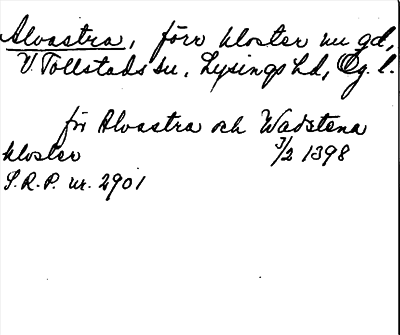 Alvastra, förr kloster nu gd,
V. Tollstads sn, Lysings hd, Ög. l.
för Alvastra och Wadstena
kloster 3/2 1398
S.R.P. nr. 2901